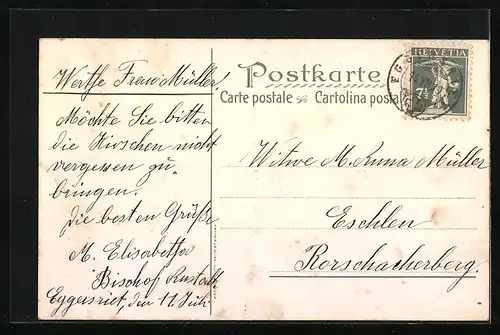 Werthe Frau Müller!
Möchte Sie bitten
die Kirschen nicht
vergessen zu
bringen.
die besten Grüße
M. Elisabetha
Bischof
Eggersriet, den 11. Juli
Postkarte
Carte postale Cartolina posta
HELVETIA
7½
Witwe M. Anna Müller
Eschlen
Rorschacherberg.